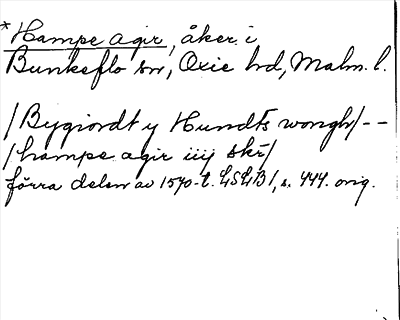 *Hampe agir, åker i
Bunkeflo sn, Oxie hd, Malm. l.
/Bygiordt y Hundts wongh/--
/hampe agir iiij skr/
förra delen av 1570-t. LSLB1, s. 444. orig.